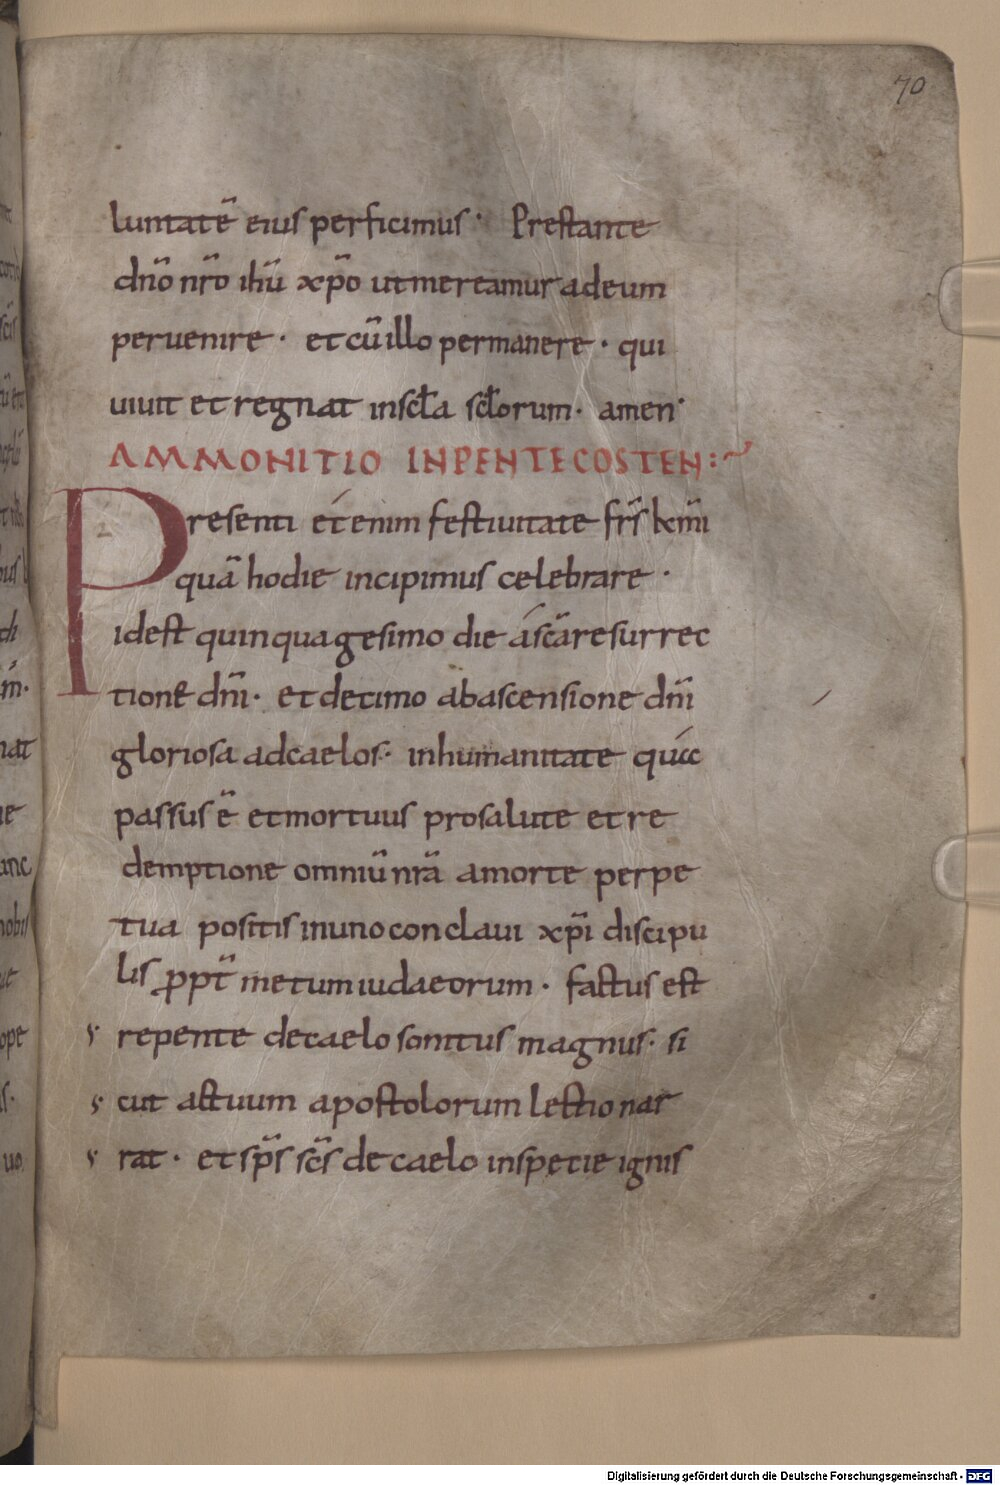 70
luntatē eius perficimus · Prestante
dn̄o nr̄o ihū xp̄o ut mereamur ad eum
peruenire · et cū illo permanere · qui
uiuit et regnat in scl̄a scl̄orum · amen ·
AMMONITIO IN PENTECOSTEN :~
Presenti etenim festiuitate fr̄s kr̄mi
quā hodie incipimus celebrare ·
id est quinquagesimo die a scā resurrec
tione dn̄i · et decimo ab ascensione dn̄i
gloriosa ad caelos · in humanitate qua
passus ē et mortuus pro salute et re
demptione omniū nr̄a a morte perpe
tua positis in uno conclaui xp̄i discipu
lis ꝓpt̄ metum iudaeorum · factus est
repente de caelo sonitus magnus · si
cut actuum apostolorum lectio nar
rat · et sp̄s sc̄s de caelo in specie ignis
Digitalisierung gefördert durch die Deutsche Forschungsgemeinschaft - DFG